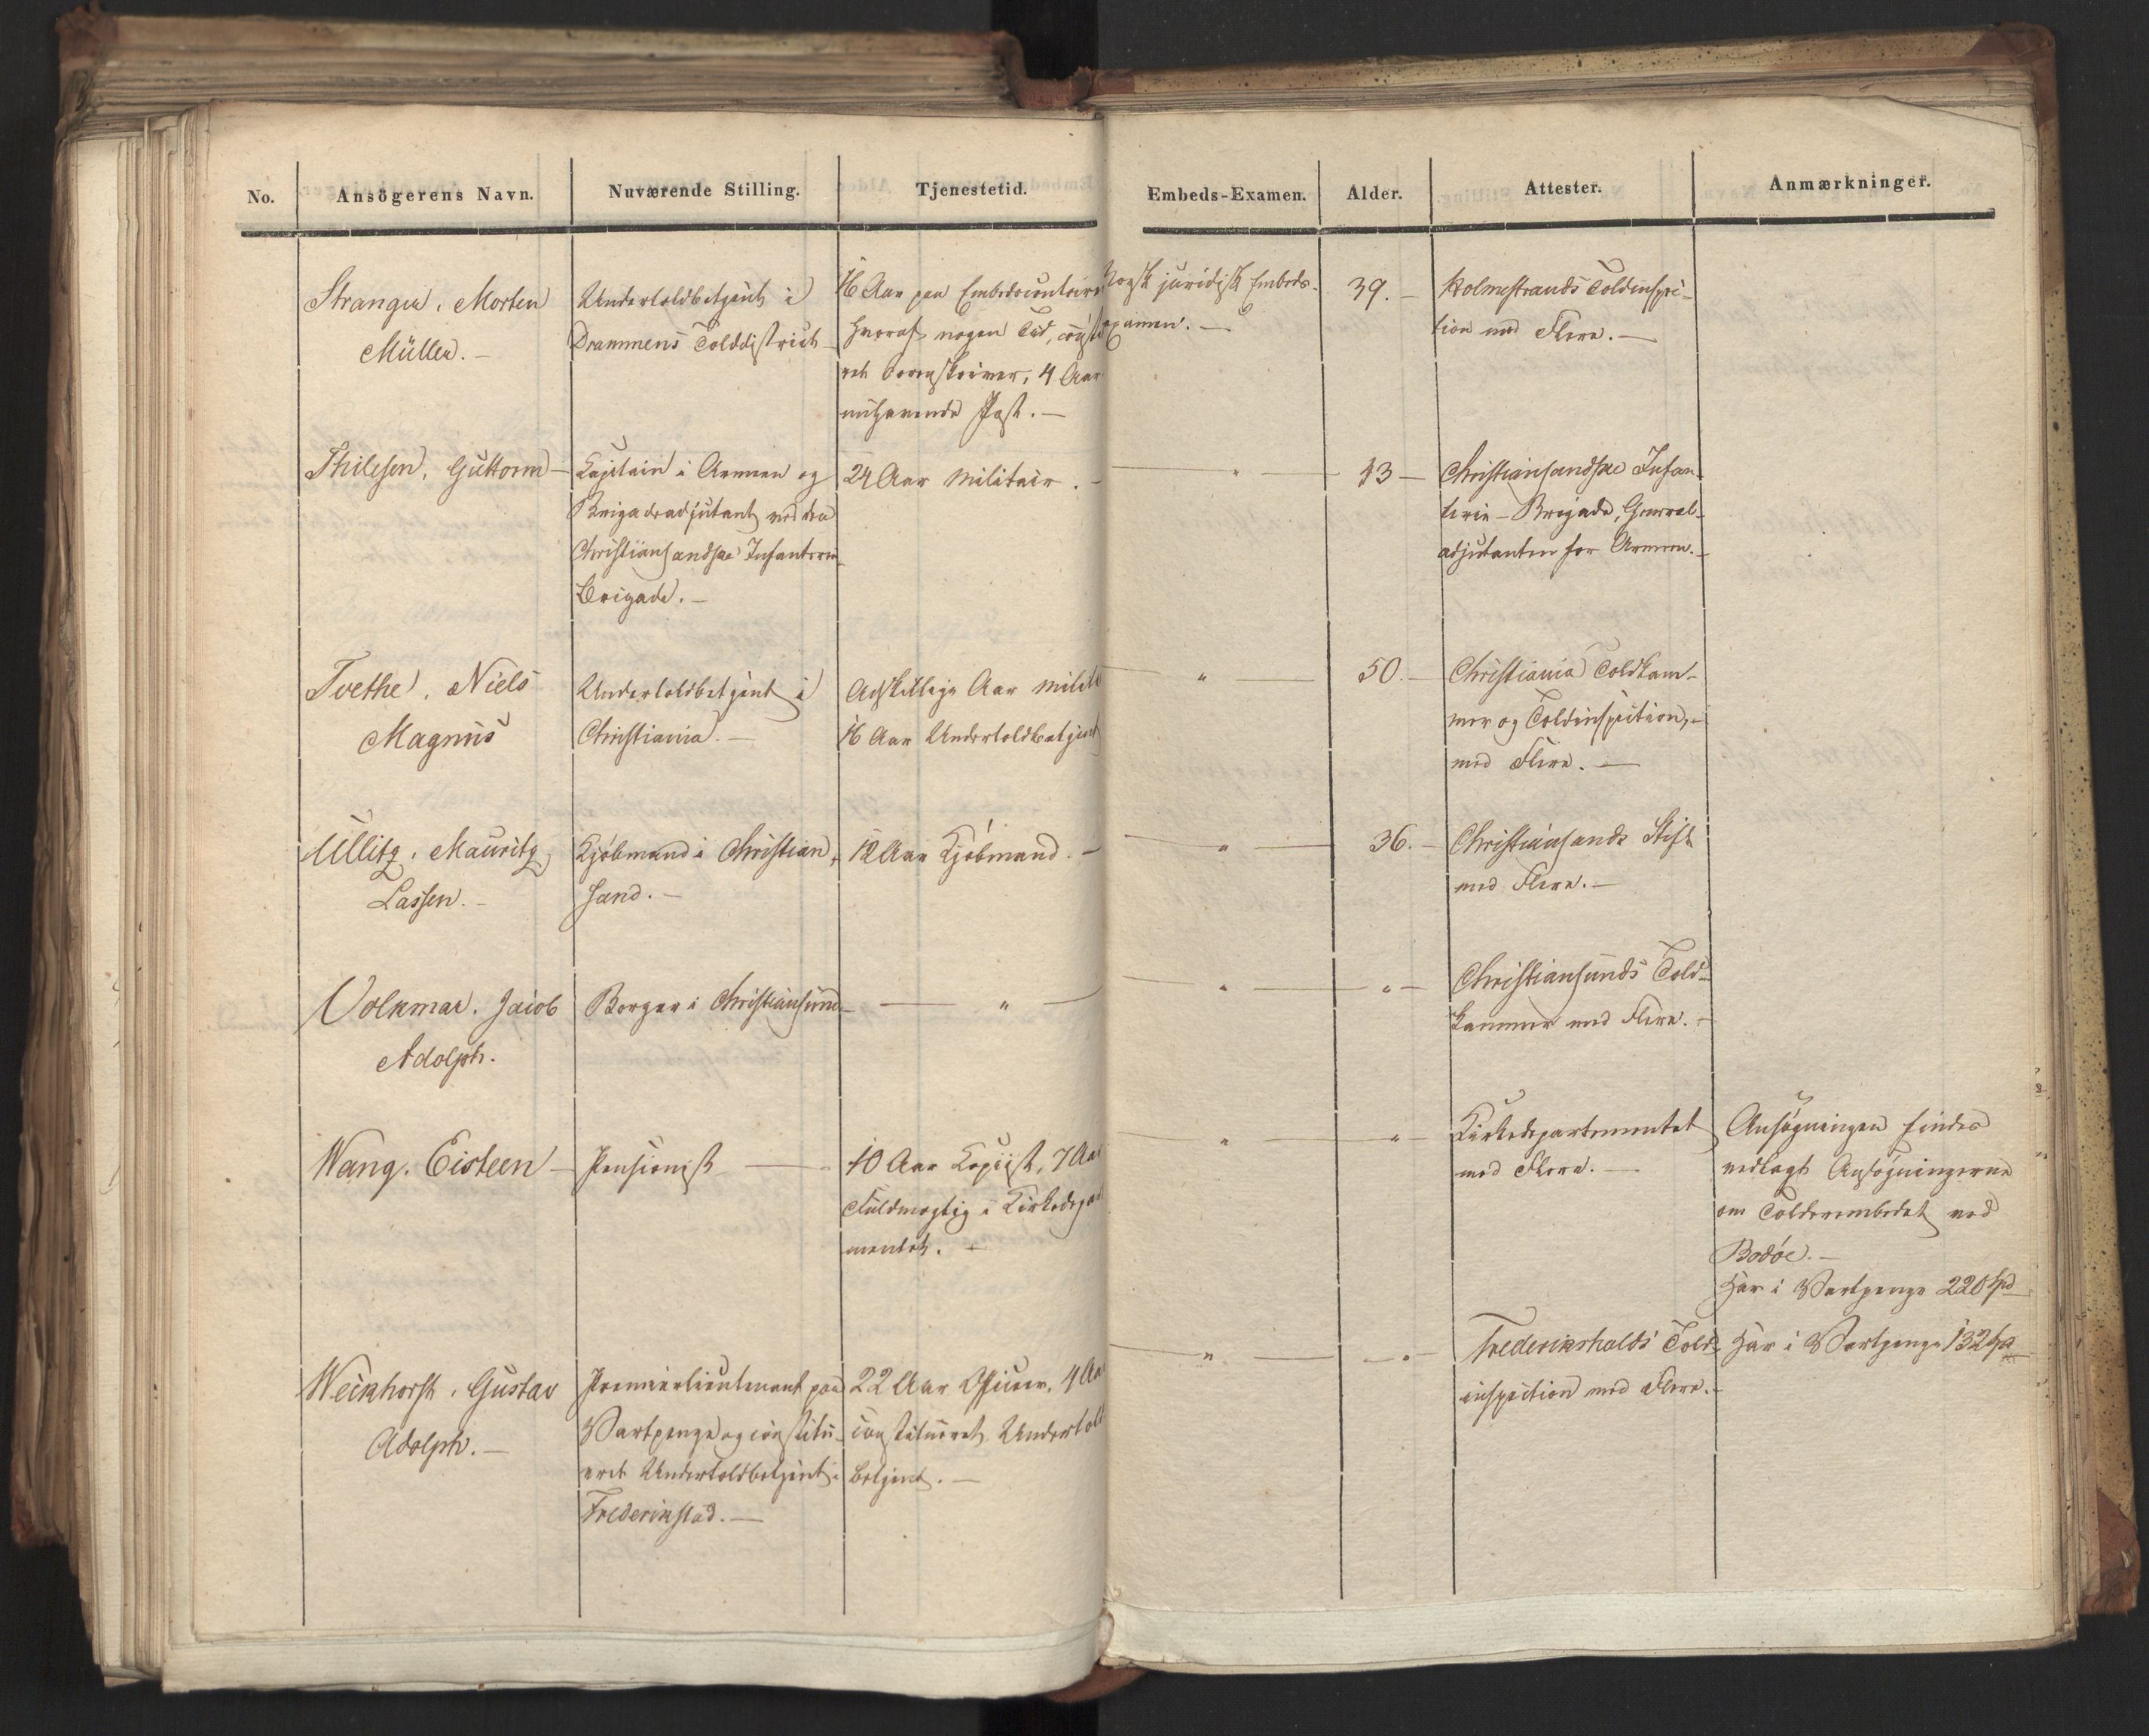 No.
Ansögerens Navn.
Nuværende Stilling.
Tjenestetid.
Embeds-Examen.
Alder.
Attester.
Anmærkninger.
Stranger, Morten
Müller. –
Undertoldbetjent i
Drammens Tolddistrict
16 Aar paa Embedscontoirer
hvoraf nogen Tid, const
ret Sorenskriver, 4 Aar
nuhavende Post. –
Norsk juridisk Embeds-
examen. –
39. –
Holmestrands Toldinspec-
tion med Flere. –
Thilesen, Guttorm –
Capitain i Armeen og
Brigadeadjutant ved den
Christiansandske Infanterie
Brigade. –
24 Aar Militair. –
"
43 –
Christiansandske Infan-
terie-Brigade, General-
adjutanten for Armeen. –
Tvethe, Niels
Magnus
Undertoldbetjent i
Christiania. –
Adskillige Aar Milit
16 Aar Undertoldbetjent
"
50. –
Christiania Toldkam-
mer og Toldinspection, –
med Flere. –
Ullitz, Mauritz
Lassen. –
Kjøbmand i Christian-
sand. –
12 Aar Kjøbmand. –
"
36. –
Christiansands Stift
med Flere. –
Volkmar, Jacob
Adolph.
Borger i Christiansund –
"
"
" –
Christiansunds Told-
kammer med Flere. –
Wang, Eisteen –
Pensionist –
10 Aar Copiist, 7 Aar
Fuldmægtig i Kirkedepar
mentet. –
"
"
Kirkedepartementet
med Flere. –
Ansøgningen findes
vedlagt Ansøgningerne
om Tolderembedet ved
Bodøe. –
Har i Vartpenge 220 Spd
Weickhorst, Gustav
Adolph. –
Premierlieutenant paa
Vartpenge og constitu-
eret Undertoldbetjent i
Frederikstad. –
22 Aar Officier, 4 Aar
constitueret Undertold
betjent. –
"
"
Frederikshalds Told-
inspection med Flere. –
Har i Vartpenge 132 Spd